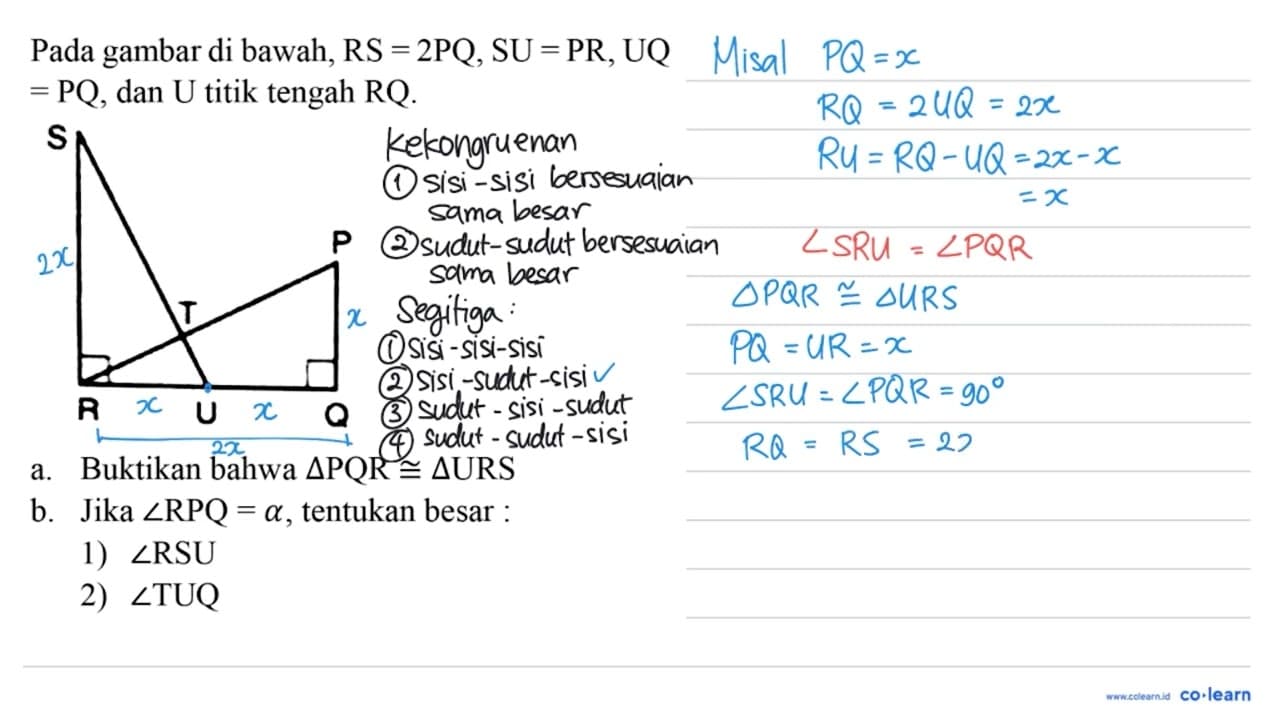 Pada gambar di bawah, RS = 2PQ, SU = PR, UQ
= PQ, dan U titik tengah RQ.
S
P
T
R
U
Q
2x
x
x
x
2x
Kekongruenan
① sisi-sisi bersesuaian
sama besar
② sudut-sudut bersesuaian
sama besar
Segitiga :
① sisi-sisi-sisi
② sisi-sudut-sisi ✓
③ sudut - sisi - sudut
④ sudut - sudut - sisi
a. Buktikan bahwa ΔPQR ≅ ΔURS
b. Jika ∠RPQ = α, tentukan besar :
1) ∠RSU
2) ∠TUQ
Misal PQ = x
RQ = 2UQ = 2x
RU = RQ - UQ = 2x - x
= x
∠SRU = ∠PQR
ΔPQR ≅ ΔURS
PQ = UR = x
∠SRU = ∠PQR = 90°
RQ = RS = 2
www.colearn.id co·learn